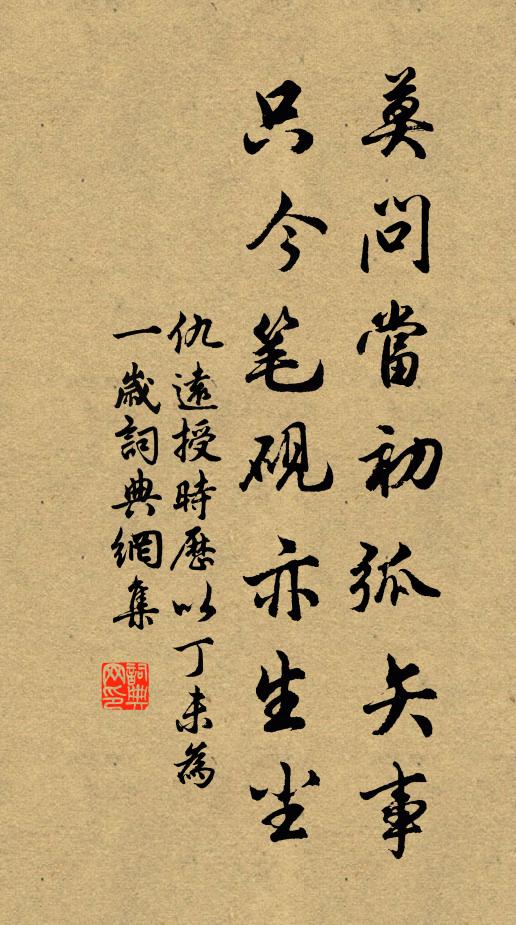 莫問當初弧矢事
只今笔砚亦生尘
仇遠授時歷以丁未為
一歲詞典網集
詞典網印